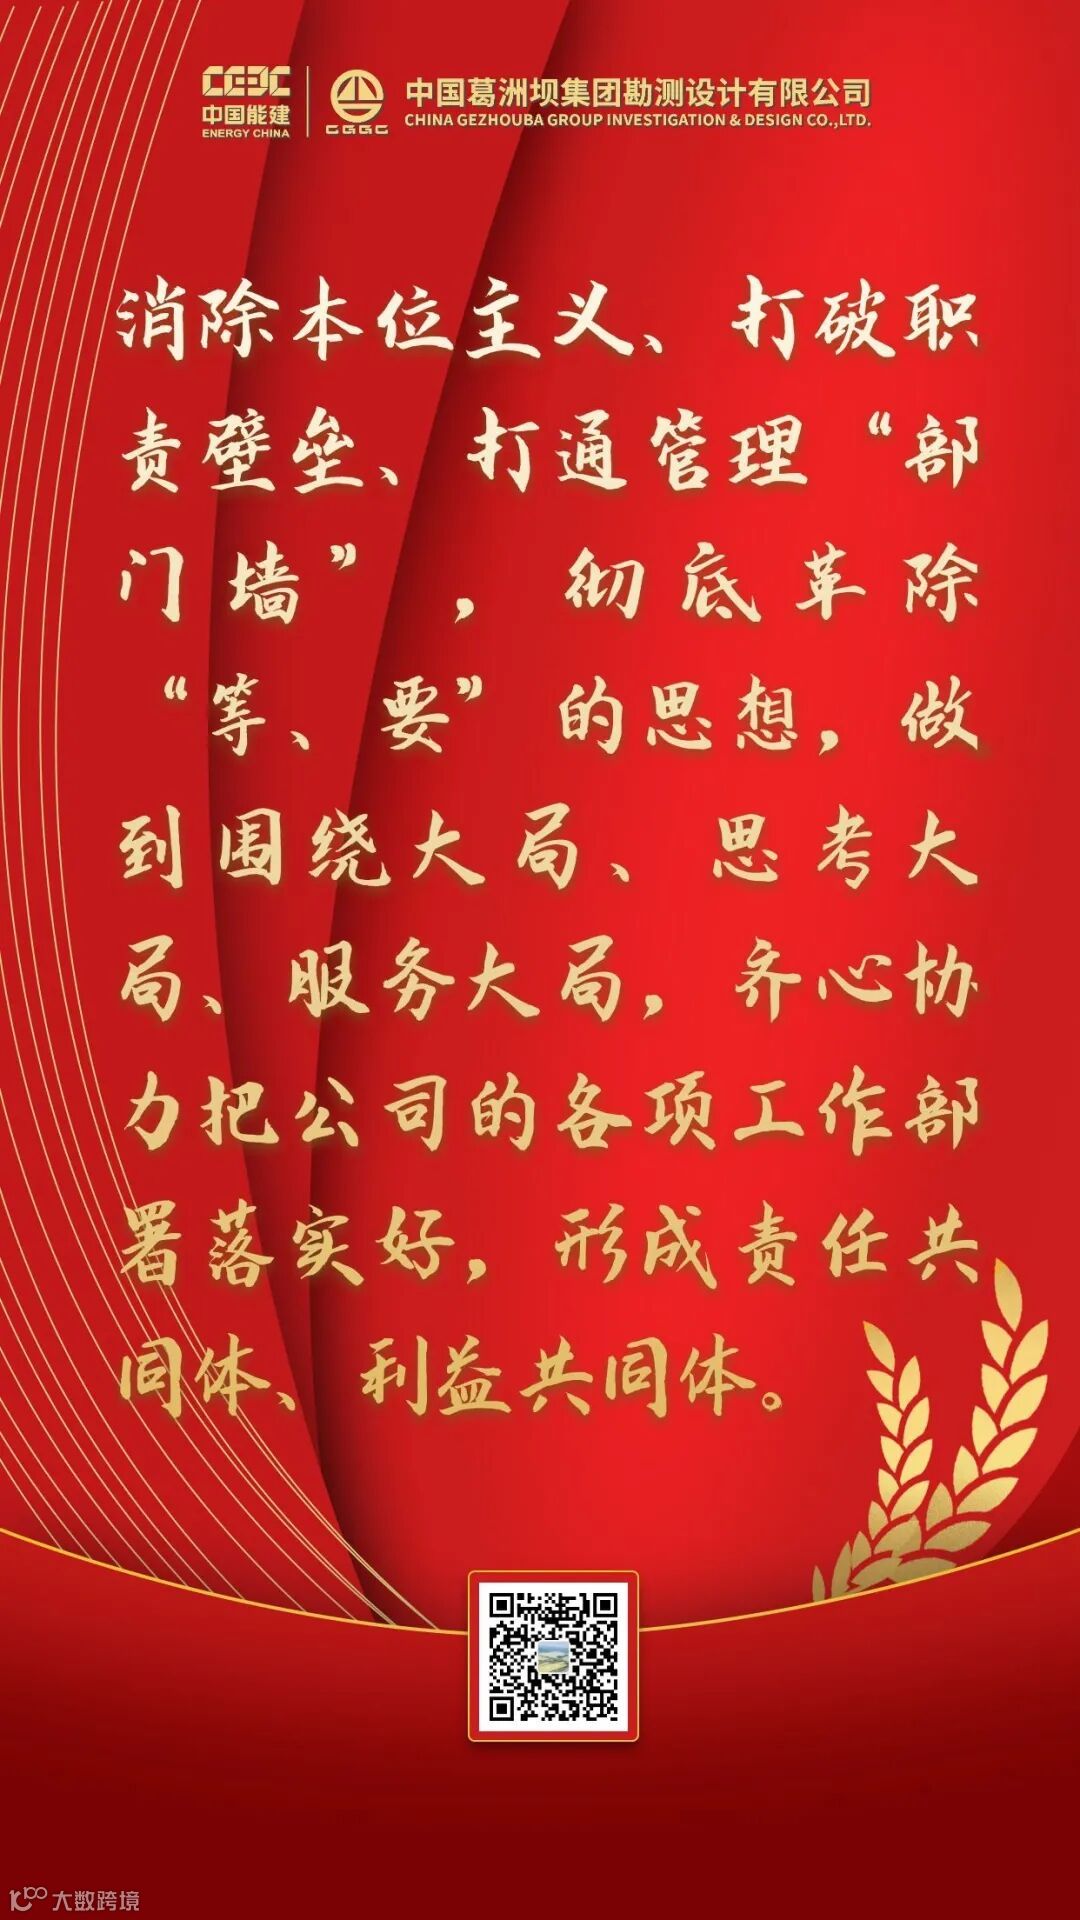 CEEC
中国能建
ENERGY CHINA
CGGC
中国葛洲坝集团勘测设计有限公司
CHINA GEZHOUBA GROUP INVESTIGATION & DESIGN CO.,LTD.
消除本位主义、打破职
责壁垒、打通管理“部
门墙”，彻底革除
“等、要”的思想，做
到围绕大局、思考大
局、服务大局，齐心协
力把公司的各项工作部
署落实好，形成责任共
同体、利益共同体。
大数跨境